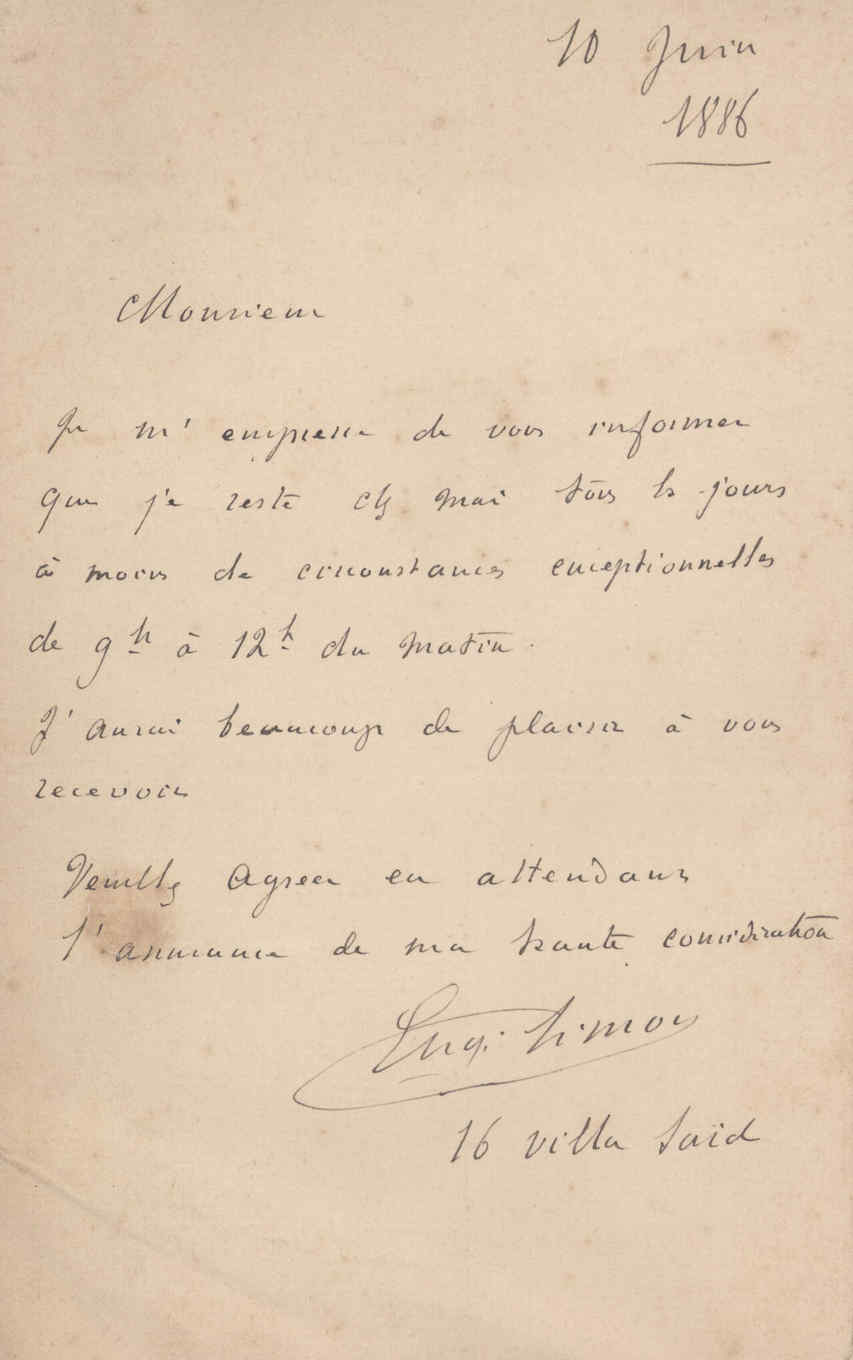 10 Juin
1886
Monsieur
Je m'empresse de vous informer
que je reste chz moi tous ls jours
à moins de circonstances exceptionnelles
de 9h à 12h du matin.
J'aurai beaucoup de plaisir à vous
recevoir
Veuillz agreer en attendant
l'assurance de ma haute considération
Eug. Simon
16 villa Saïd